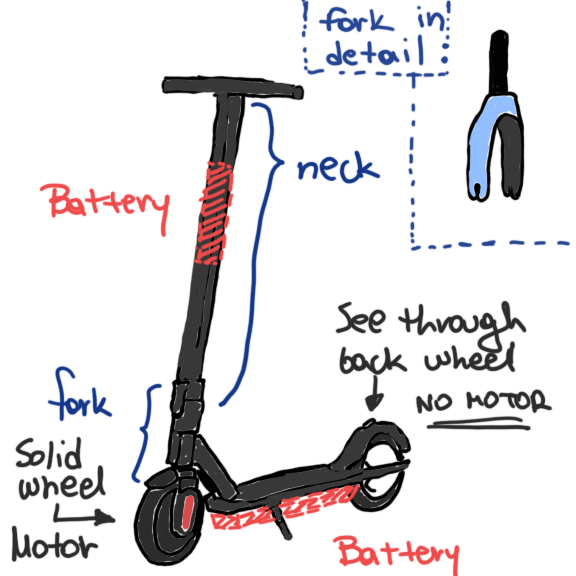 fork in
detail:
neck
Battery
See through
back wheel
NO MOTOR
fork
Solid
wheel
Motor
Battery